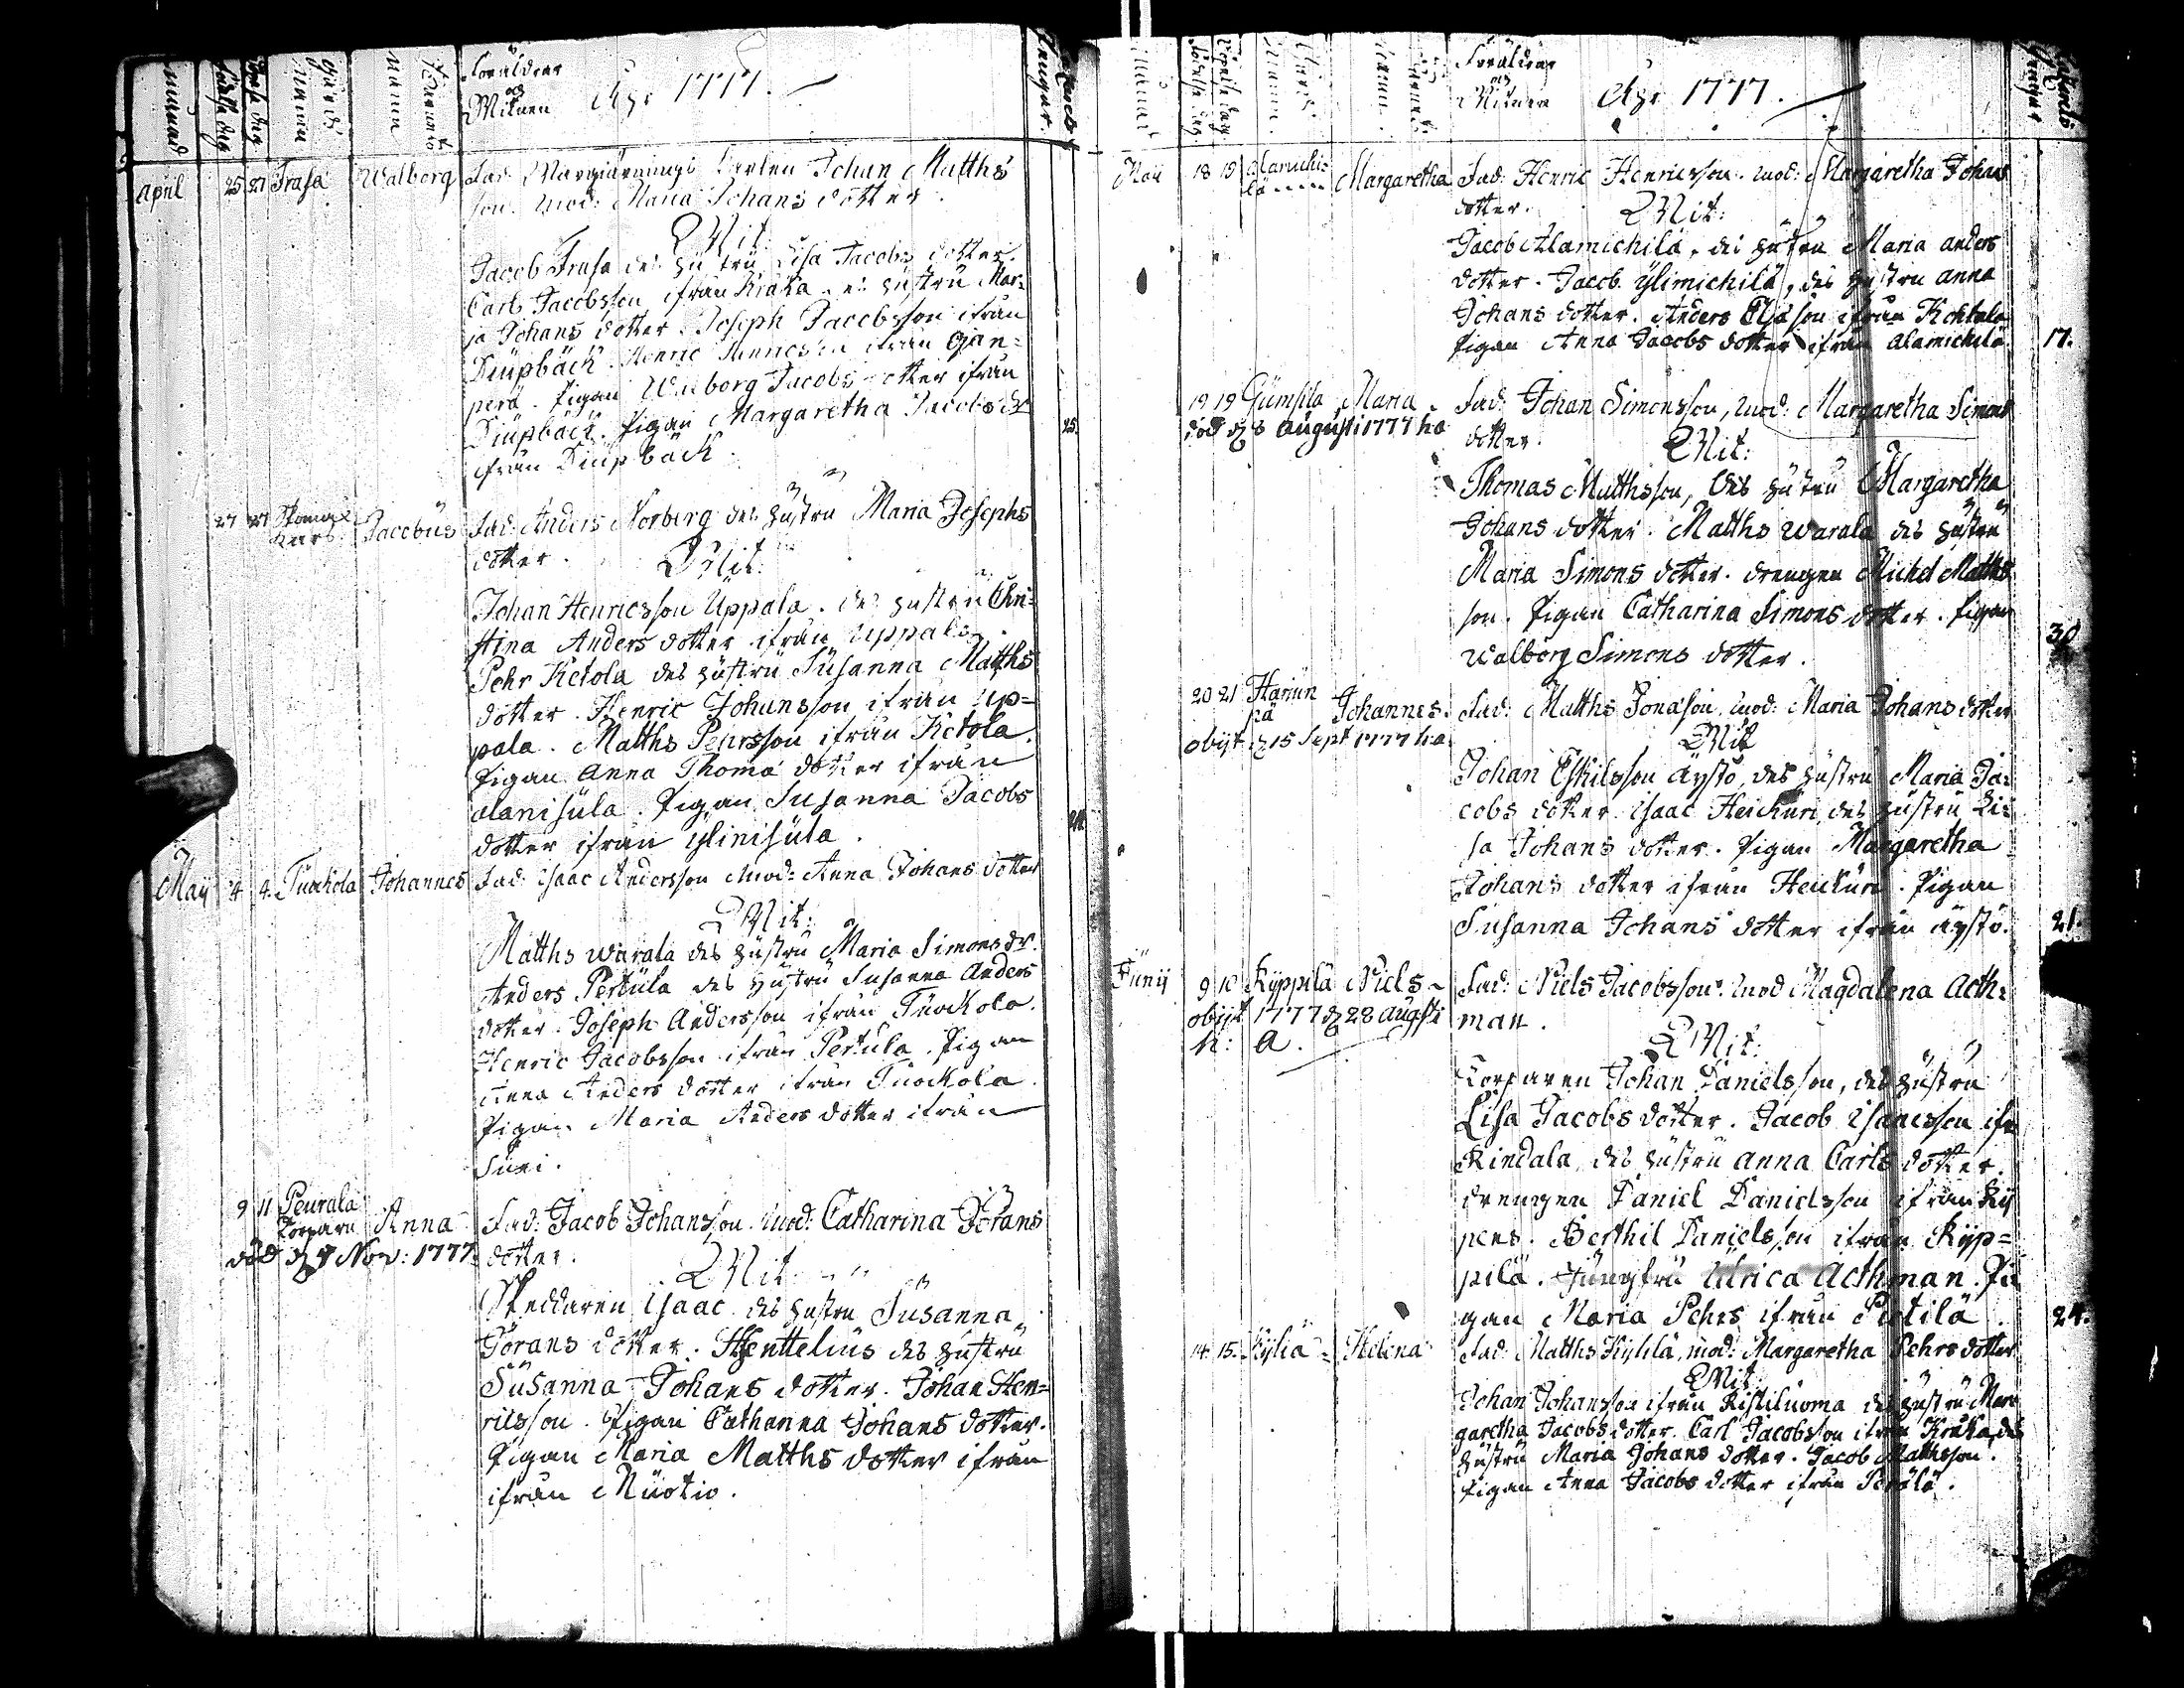 Månad
Födelse dag
Dop dag
Gårds
Namn
Barnets
Namn
Föräldrar
och
Witnen Åhr 1777.
Åkerds
Pengar.
April 25 27 Frasa Walborg Fad. Johan Matths
son. Mod: Maria Johans dotter.
Wit
Jacob Frasa des hustru Lisa Jacobs dotter.
Carl Jacobsson ifrån Kråka, des hustru Mar:
ja Johans dotter. Joseph Jacobsson ifrån
Diupbäck. Henric Henricsson ifrån Ojan=
perä. Pigan Walborg Jacobs dotter ifrån
Diupbäck. Pigan Margaretha Jacobs dr
ifrån Diupbäck. 25.
27 27 Jacobus Fad: Anders Norberg des hustru Maria Josephs
dotter. Wit:
Johan Henricsson Uppala. des hustru Chri=
stina Anders dotter ifrån Uppala.
Pehr Ketola des hustru Susanna Matths
dotter. Henric Johansson ifrån Up=
pala. Matths Pehrsson ifrån Ketola.
Pigan Anna Thoma dotter ifrån
alanisula. Pigan Susanna Jacobs
dotter ifrån ylinisula.
May 4 4. Tuockola Johannes Fad: Isaac Andersson Mod: Anna Johans dotter
Wit:
Matths Warala des hustru Maria Simons dr.
Anders Pertula des hustru Susanna Anders
dotter. Joseph Andersson ifrån Tuockola.
Henric Jacobsson ifrån Pertula. Pigan
Anna Anders dotter ifrån Tuockola.
Pigan Maria Anders dotter ifrån
Suni.
9 11 Peurala
Torparn Anna Fad: Jacob Johansson. Mod: Catharina Görans
död d 7 Nov: 1777. dotter.
Wit:
Isaac des hustru Susanna
Görans dotter. Henttelius des hustru
Susanna Johans dotter. Johan Hen=
ricsson. Pigan Catharina Johans dotter.
Pigan Maria Matths dotter ifrån
ifrån Nuotio.
Månad
Födelse dag
Döpelse dag
Gårds
Namn
Barnets
Namn
Föräldrar
och
Witnen Åhr 1777.
Åkerds
Pengar
Maij 18 19 Alamichi=
lä Margaretha Fad: Henric Henricsson. Mod: Margaretha Johans
dotter. Wit:
Jacob Alamichilä, des hustru Maria anders
dotter. Jacob ylimichilä, des hustru anna
Johans dotter. Anders Elisson ifrån
Pigan Anna Jacobs dotter ifrån alamichilä. 17.
19 19 Gumsila Maria. Fad: Johan Simonsson, Mod: Margaretha Simons
död d 8 augusti 1777 h a dotter. Wit:
Thomas Matthsson, des hustru Margaretha
Johans dotter. Matths Warala des hustru
Maria Simons dotter. drengen Michel Matths
son. Pigan Catharina Simons dotter. Pigan
Walborg Simons dotter. 30
20 21 Hariun
pä Johannes. Fad: Matths Jonasson Mod: Maria Johans dotter
obijt d 15 Sept 1777 h a Wit
Johan Eskilsson äystö, des hustru Maria Ja=
cobs dotter. Isaac Heickuri, des hustru Li=
sa Johans dotter. Pigan Margaretha
Johans dotter ifrån Heickuri. Pigan
Susanna Johans dotter ifrån äystö. 21.
Junij 9 10 Kyppilä Niels Fad: Niels Jacobsson. Mod Magdalena Acth=
obijt 1777 d 28 augsti man.
h: a. Wit:
Torparen Johan Danielsson, des hustru
Lisa Jacobs dotter. Jacob Isacsson ifr
Rindala, des hustru anna Carls dotter.
drengen Daniel Danielsson ifrån Ky
pens. Berthil Danielsson ifrån Kyp=
pilä. Jungfru Ulrica Acthman. Pi
gan Maria Pehrs ifrån Pietilä. 24.
14. 15. Kylilä Helena Fad: Matths Kylilä, mod: Margaretha Pehrs dotter
Wit:
Johan Johansson ifrån Ristiluoma des hustru Mar
garetha Jacobs dotter. Carl Jacobsson ifrån Kråka, des
hustru Maria Johans dotter. Jacob Matthsson.
Pigan Anna Jacobs dotter ifrån